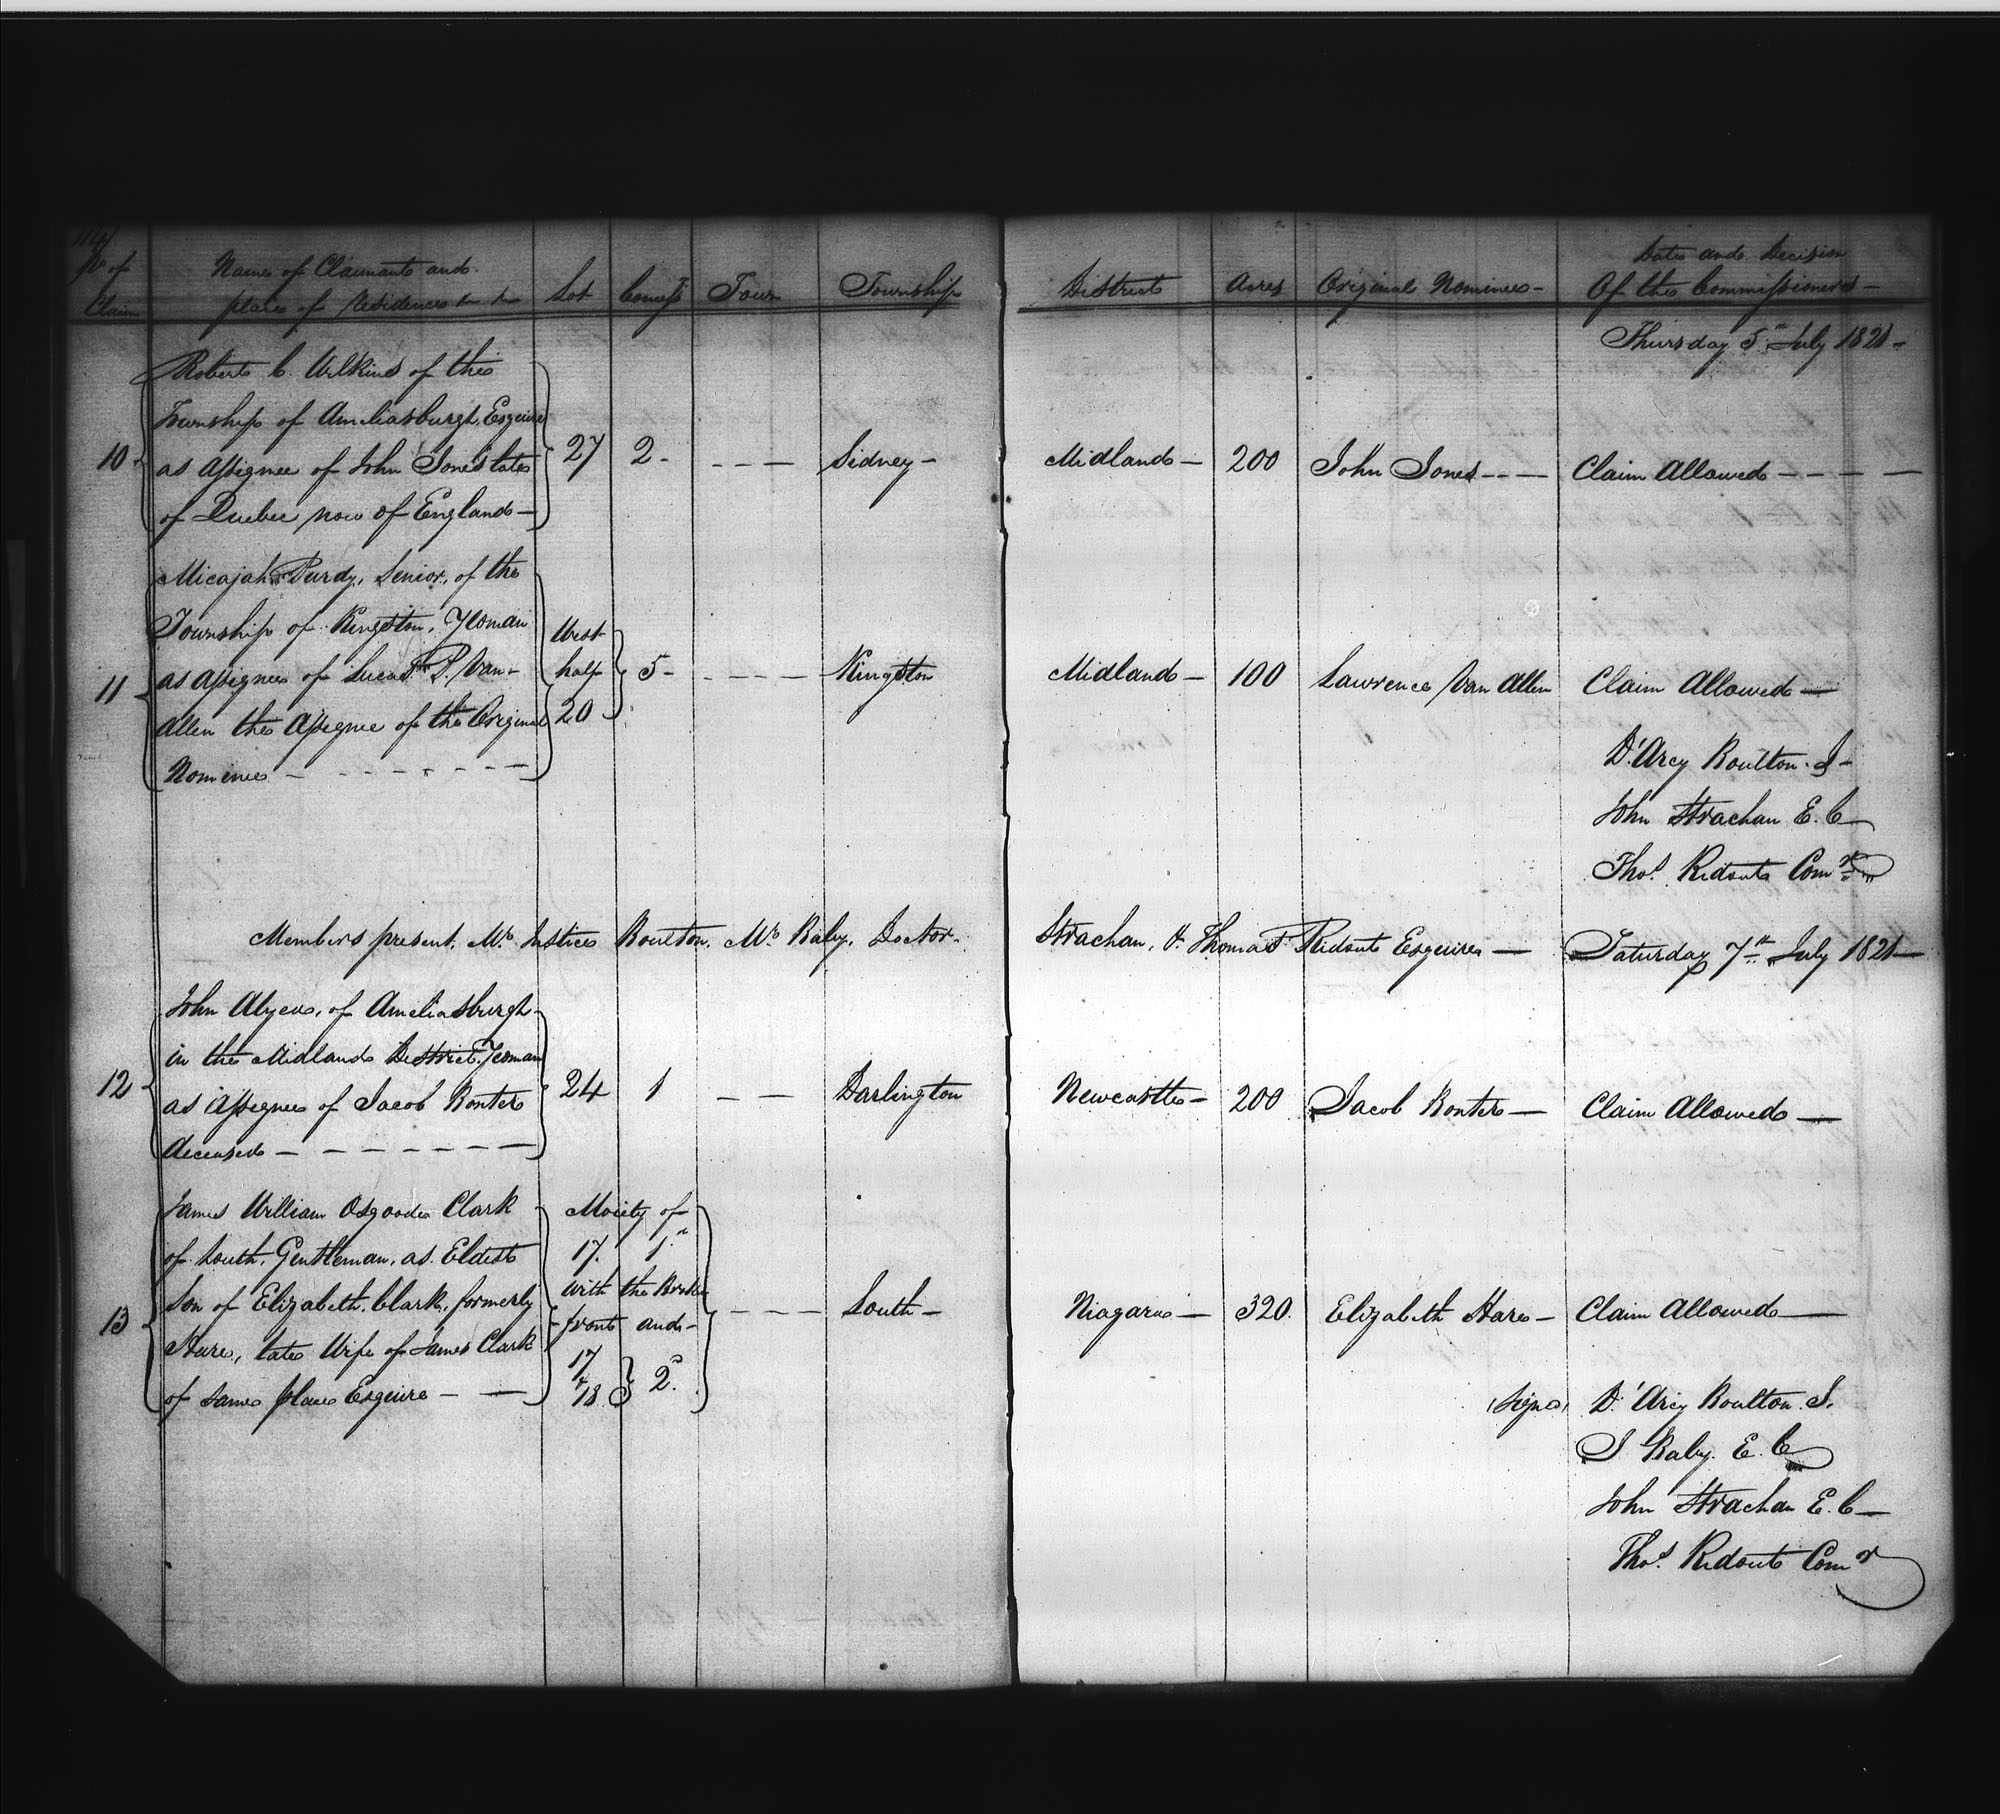 114
No of Claim
Names of Claimants and places of Residence
Lot
Concess
Town
Township
District
Acres
Original Nominee
Date and Decision Of the Commissioners
Thursday 5th July 1821
10
Robert C. Wilkins of the
Township of Ameliasburgh, Esquire
as Assignee of John Jones late
of Quebec now of England
27
2
Sidney
Midland
200
John Jones
Claim Allowed
11
Micajah Purdy, Senior, of the
Township of Kingston, Yeoman
as Assignee of Lucas P. Van-
Allen the Assignee of the Original
Nominee
West
half
20
5
Kingston
Midland
100
Lawrence Van Allen
Claim Allowed
D'Arcy Boulton. J
John Strachan E. C
Thos. Ridout Comr
Members present, Mr. Justice Boulton, Mr Baby, Doctor Strachan, & Thomas Ridout Esquires
Saturday 7th July 1821
12
John Alyea, of Ameliasburgh
in the Midland District, Yeoman
as Assignee of Jacob Bonter
deceased
24
1
Darlington
Newcastle
200
Jacob Bonter
Claim Allowed
13
James William Osgoode Clark
of Louth, Gentleman, as Eldest
Son of Elizabeth Clark, formerly
Hare, late Wife of James Clark
of same place Esquire
Moiety of
17. 1st
with the Broken
front and
17
& 18
2d
Louth
Niagara
320.
Elizabeth Hare
Claim Allowed
(Signed) D'Arcy Boulton. J.
J Baby. E. C
John Strachan E. C
Thos. Ridout Comr